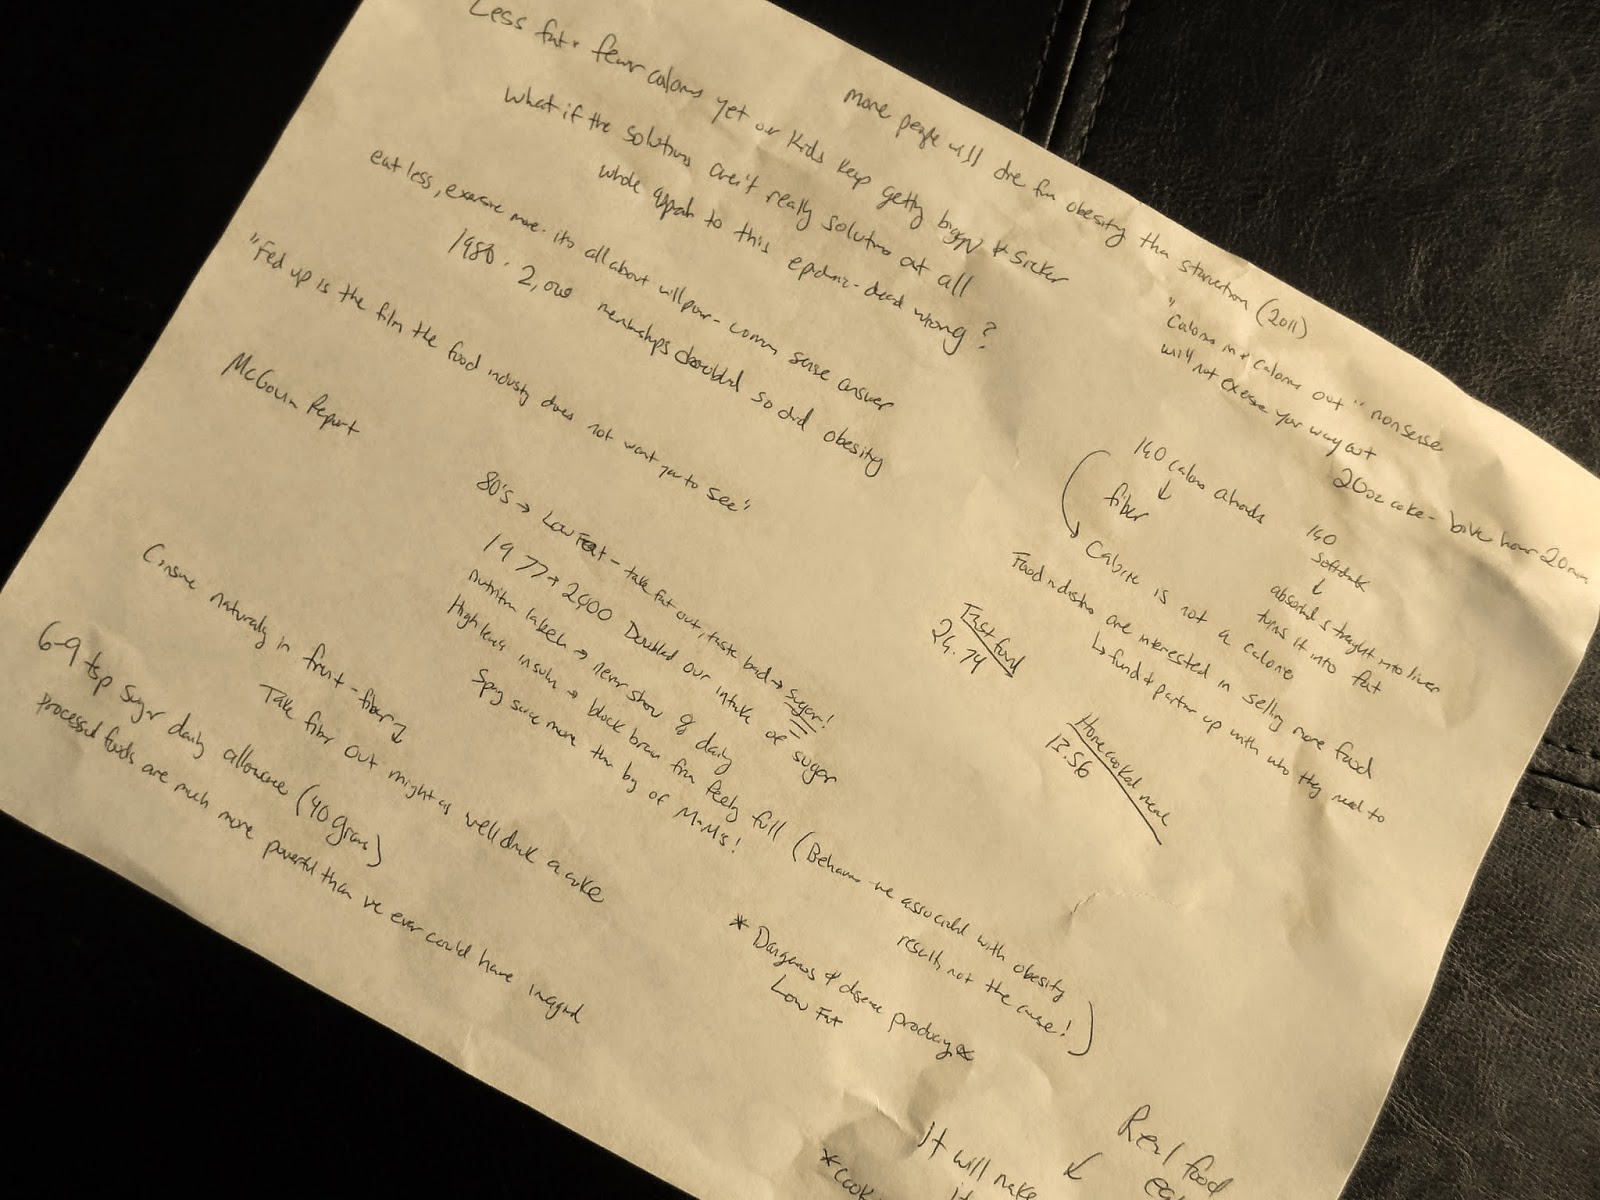 Less fat + fewer calories yet our kids keep getting bigger + sicker
More people will die from obesity than starvation (2011)
What if the solutions aren't really solutions at all
whole appoach to this epidemic - dead wrong?
eat less, exercise more - its all about willpower - common sense answer
1980 - 2,000 memberships doubled so did obesity
"Fed up is the film the food industry does not want you to see"
McGovern Report
"Calories in + calories out" nonsense
will not exercise your way out
20oz coke - bike hour 20 min
140 calories almonds
↓
fiber
140
softdrink
↓
absorbed straight into liver
turns it into fat
Calorie is not a calorie
Food industries are interested in selling more food
↳ fund + partner up with who they need to
80's → Low Fat - take fat out, taste bad → sugar!
1977 → 2000 Doubled our intake of sugar
nutrition labels → never show % daily
High levels insulin → block brain from feeling full (Behaviors we associated with obesity
results not the cause!)
Spag sauce more than bag of M+M's!
Fast food
24.74
Home cooked meal
13.56
Consume naturally in fruit - fiber
Take fiber out might as well drink a coke
6-9 tsp sugar daily allowance (40 grams)
processed foods are much more powerful than we ever could have imagined
* Dangerous & disease producing *
Low Fat
Real food
It will make
* Cook